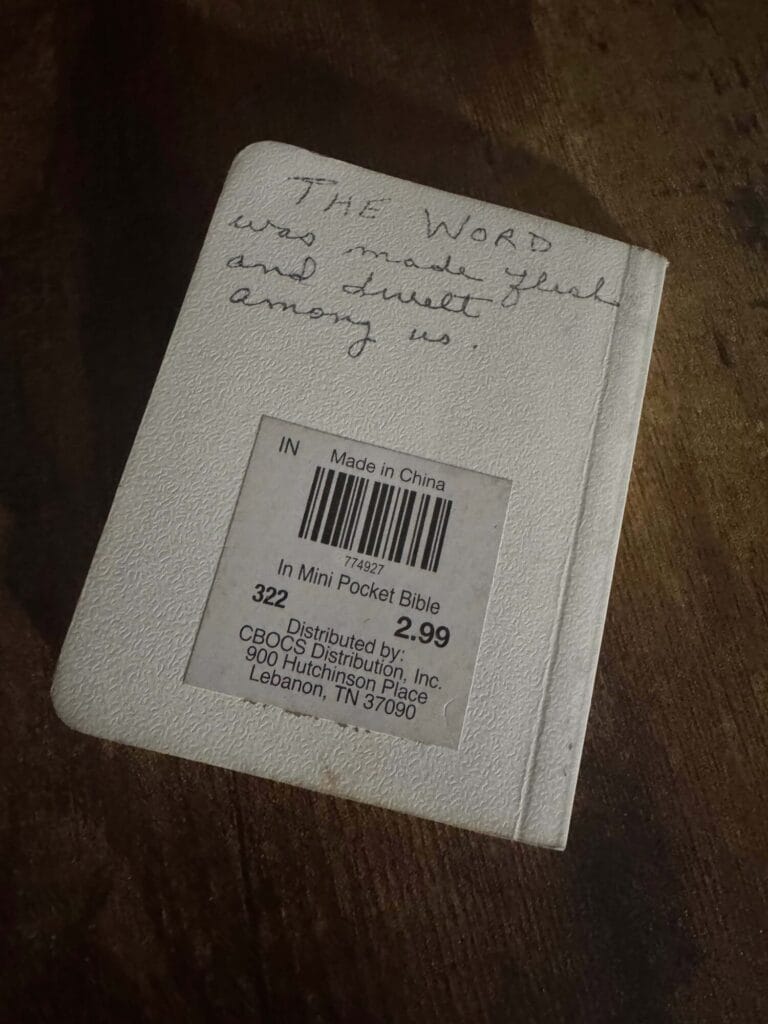 THE WORD
was made flesh
and dwelt
among us.
IN Made in China
774927
In Mini Pocket Bible
322 2.99
Distributed by:
CBOCS Distribution, Inc.
900 Hutchinson Place
Lebanon, TN 37090